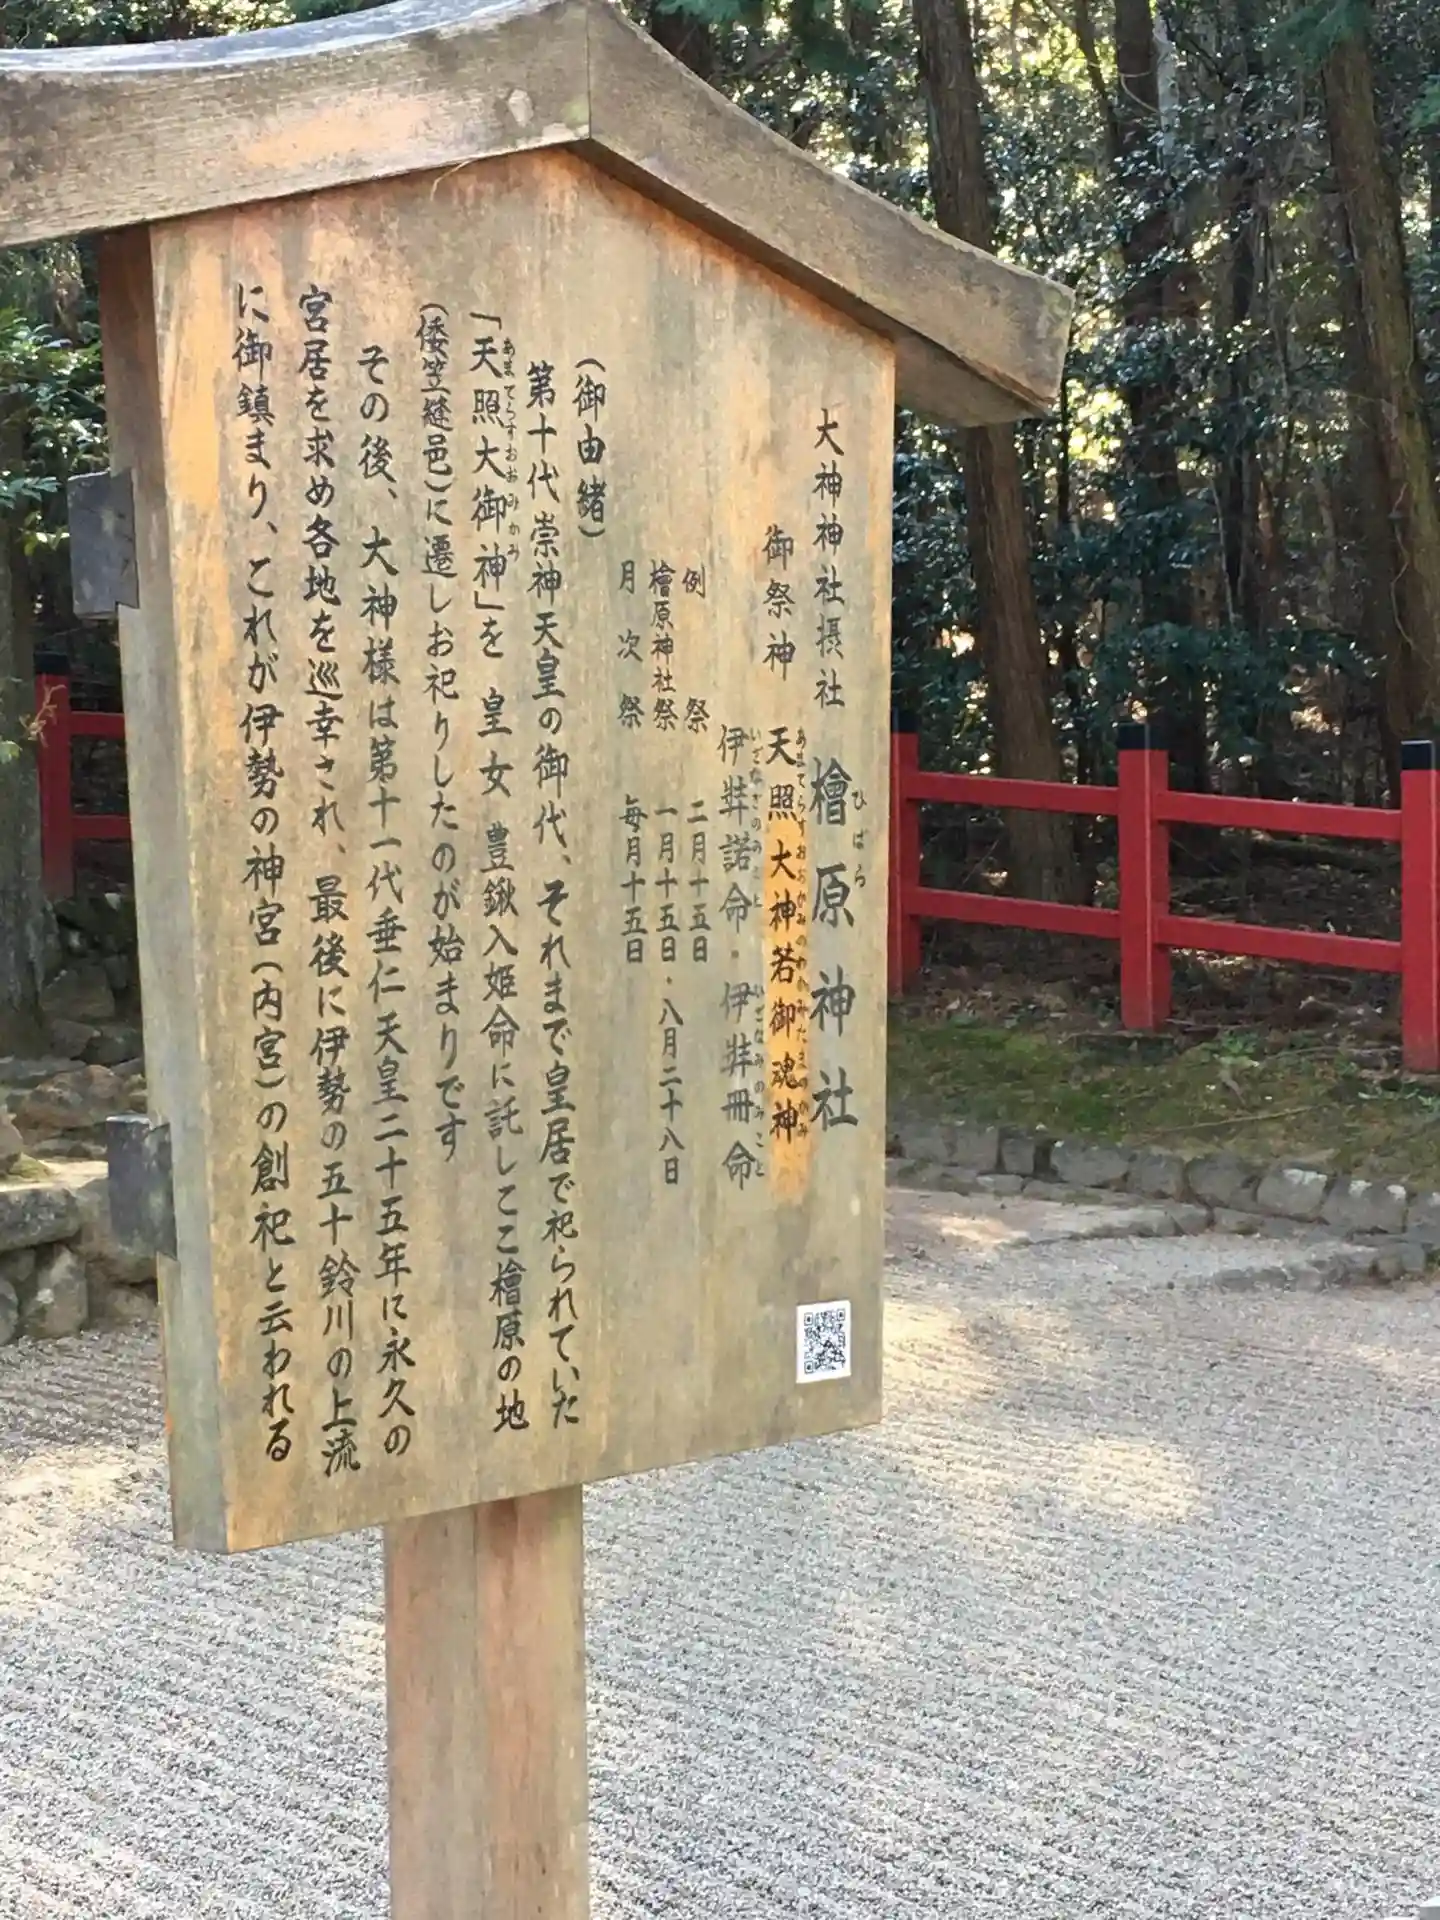 大神神社摂社 檜原神社
ひばら
御祭神 天照大神若御魂神
あまてらすおおかみのわかみたまのかみ
伊弉諾命・伊弉冊命
いざなぎのみこと いざなみのみこと
例祭 二月十五日
檜原神社祭 一月十五日・八月二十八日
月次祭 毎月十五日
(御由緒)
第十代崇神天皇の御代、それまで皇居で祀られていた
「天照大御神」を 皇女 豊鍬入姫命に託しここ檜原の地
あまてらすおおみかみ
(倭笠縫邑)に遷しお祀りしたのが始まりです
その後、大神様は第十一代垂仁天皇二十五年に永久の
宮居を求め各地を巡幸され、最後に伊勢の五十鈴川の上流
に御鎮まり、これが伊勢の神宮(内宮)の創祀と云われる